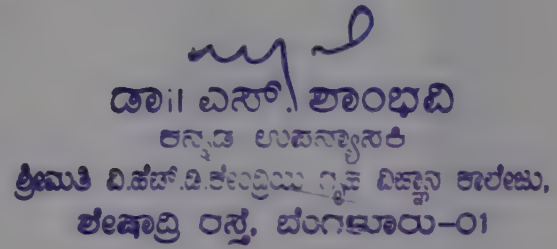 ಡಾ|| ಎಸ್. ಶಾಂಭವಿ
ಕನ್ನಡ ಉಪನ್ಯಾಸಕಿ
ಶ್ರೀಮತಿ ವಿ.ಹೆಚ್.ಡಿ.ಕೇಂದ್ರಿಯ ಗೃಹ ವಿಜ್ಞಾನ ಕಾಲೇಜು,
ಶೇಷಾದ್ರಿ ರಸ್ತೆ, ಬೆಂಗಳೂರು-01